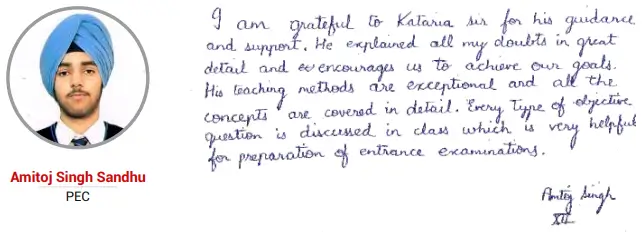 I am grateful to Kataria sir for his guidance
and support. He explained all my doubts in great
detail and encourages us to achieve our goals.
His teaching methods are exceptional and all the
concepts are covered in detail. Every type of objective
question is discussed in class which is very helpful
for preparation of entrance examinations.
Amitoj Singh
XII
Amitoj Singh Sandhu
PEC